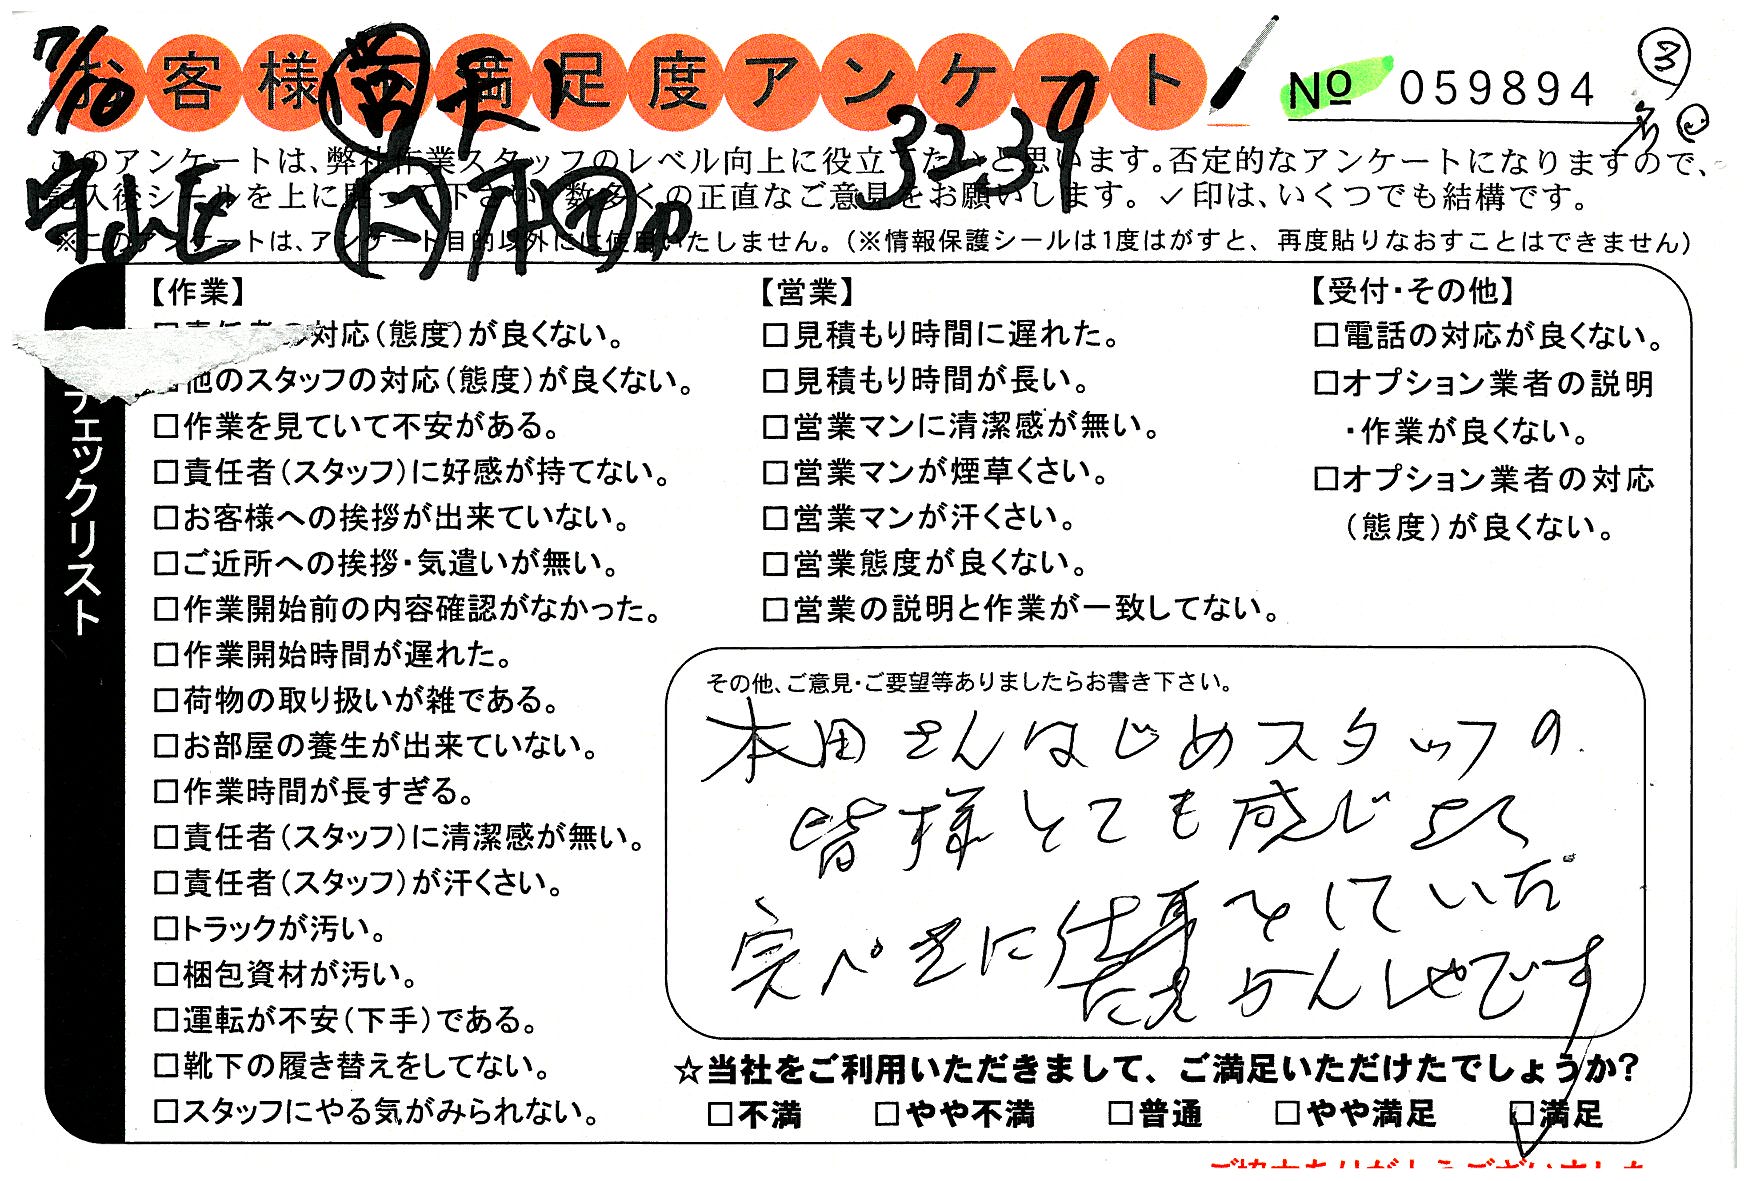 7/10
お客様満足度アンケート
№ 059894
3
名
3239
守山区
このアンケートは、弊社作業スタッフのレベル向上に役立てたいと思います。否定的なアンケートになりますので、
記入後シールを上に貼って下さい。数多くの正直なご意見をお願いします。✓印は、いくつでも結構です。
※このアンケートは、アンケート目的以外には使用いたしません。（※情報保護シールは1度はがすと、再度貼りなおすことはできません）
チェックリスト
【作業】
□責任者の対応（態度）が良くない。
□他のスタッフの対応（態度）が良くない。
□作業を見ていて不安がある。
□責任者（スタッフ）に好感が持てない。
□お客様への挨拶が出来ていない。
□ご近所への挨拶・気遣いが無い。
□作業開始前の内容確認がなかった。
□作業開始時間が遅れた。
□荷物の取り扱いが雑である。
□お部屋の養生が出来ていない。
□作業時間が長すぎる。
□責任者（スタッフ）に清潔感が無い。
□責任者（スタッフ）が汗くさい。
□トラックが汚い。
□梱包資材が汚い。
□運転が不安（下手）である。
□靴下の履き替えをしてない。
□スタッフにやる気がみられない。
【営業】
□見積もり時間に遅れた。
□見積もり時間が長い。
□営業マンに清潔感が無い。
□営業マンが煙草くさい。
□営業マンが汗くさい。
□営業態度が良くない。
□営業の説明と作業が一致してない。
【受付・その他】
□電話の対応が良くない。
□オプション業者の説明
・作業が良くない。
□オプション業者の対応
（態度）が良くない。
その他、ご意見・ご要望等ありましたらお書き下さい。
本田さんはじめスタッフの
皆様とても感じよく
完ぺきに仕事をしていただ
たき かんしゃです
☆当社をご利用いただきまして、ご満足いただけたでしょうか？
□不満 □やや不満 □普通 □やや満足 ☑満足
ご協力ありがとうございました